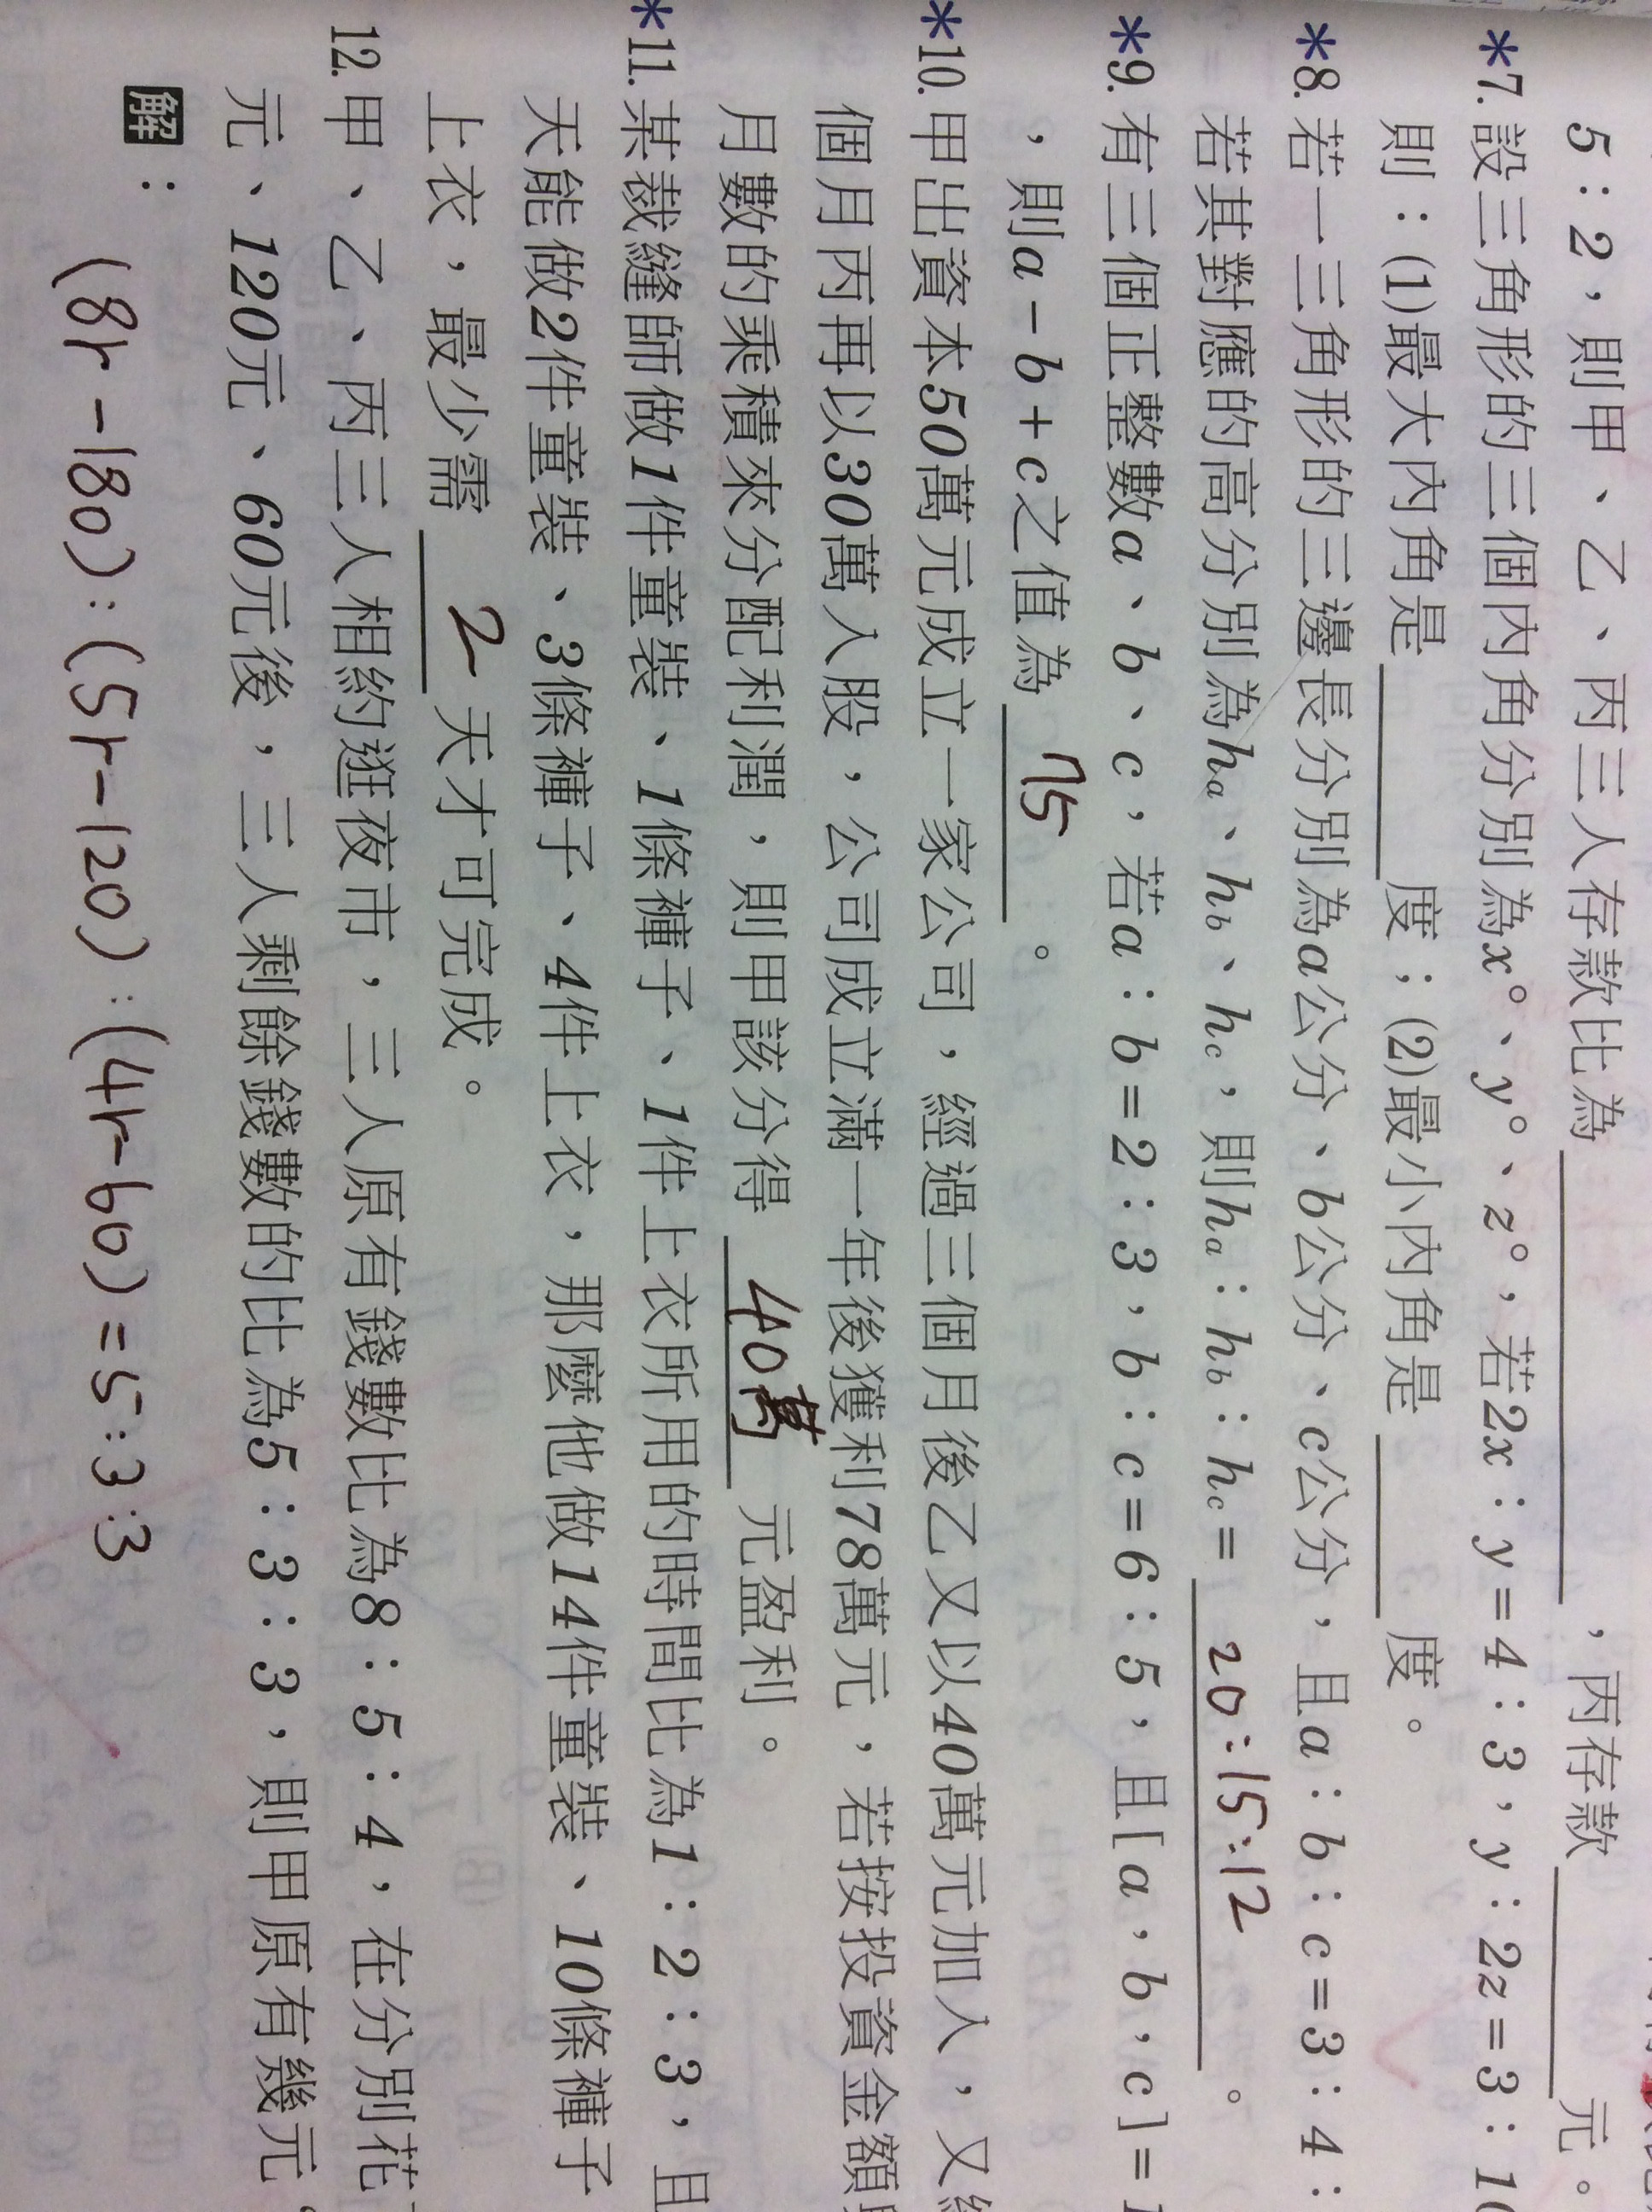 5：2，則甲、乙、丙三人存款比為＿＿＿＿，丙存款＿＿＿＿元。
*7.設三角形的三個內角分別為x°、y°、z°，若2x：y=4：3，y：2z=3：10
則：(1)最大內角是＿＿＿＿度；(2)最小內角是＿＿＿＿度。
*8.若一三角形的三邊長分別為a公分、b公分、c公分，且a：b：c=3：4：
若其對應的高分別為ha、hb、hc，則ha：hb：hc= 20:15:12 。
*9.有三個正整數a、b、c，若a：b=2：3，b：c=6：5，且[a，b，c]=1
，則a-b+c之值為 75 。
*10.甲出資本50萬元成立一家公司，經過三個月後乙又以40萬元加入，又
個月丙再以30萬入股，公司成立滿一年後獲利78萬元，若按投資金額
月數的乘積來分配利潤，則甲該分得 40萬 元盈利。
*11.某裁縫師做1件童裝、1條褲子、1件上衣所用的時間比為1：2：3，且
天能做2件童裝、3條褲子、4件上衣，那麼他做14件童裝、10條褲子
上衣，最少需 2 天才可完成。
12.甲、乙、丙三人相約逛夜市，三人原有錢數比為8：5：4，在分別花
元、120元、60元後，三人剩餘錢數的比為5：3：3，則甲原有幾元
解：(8r-180):(5r-120):(4r-60)=5:3:3